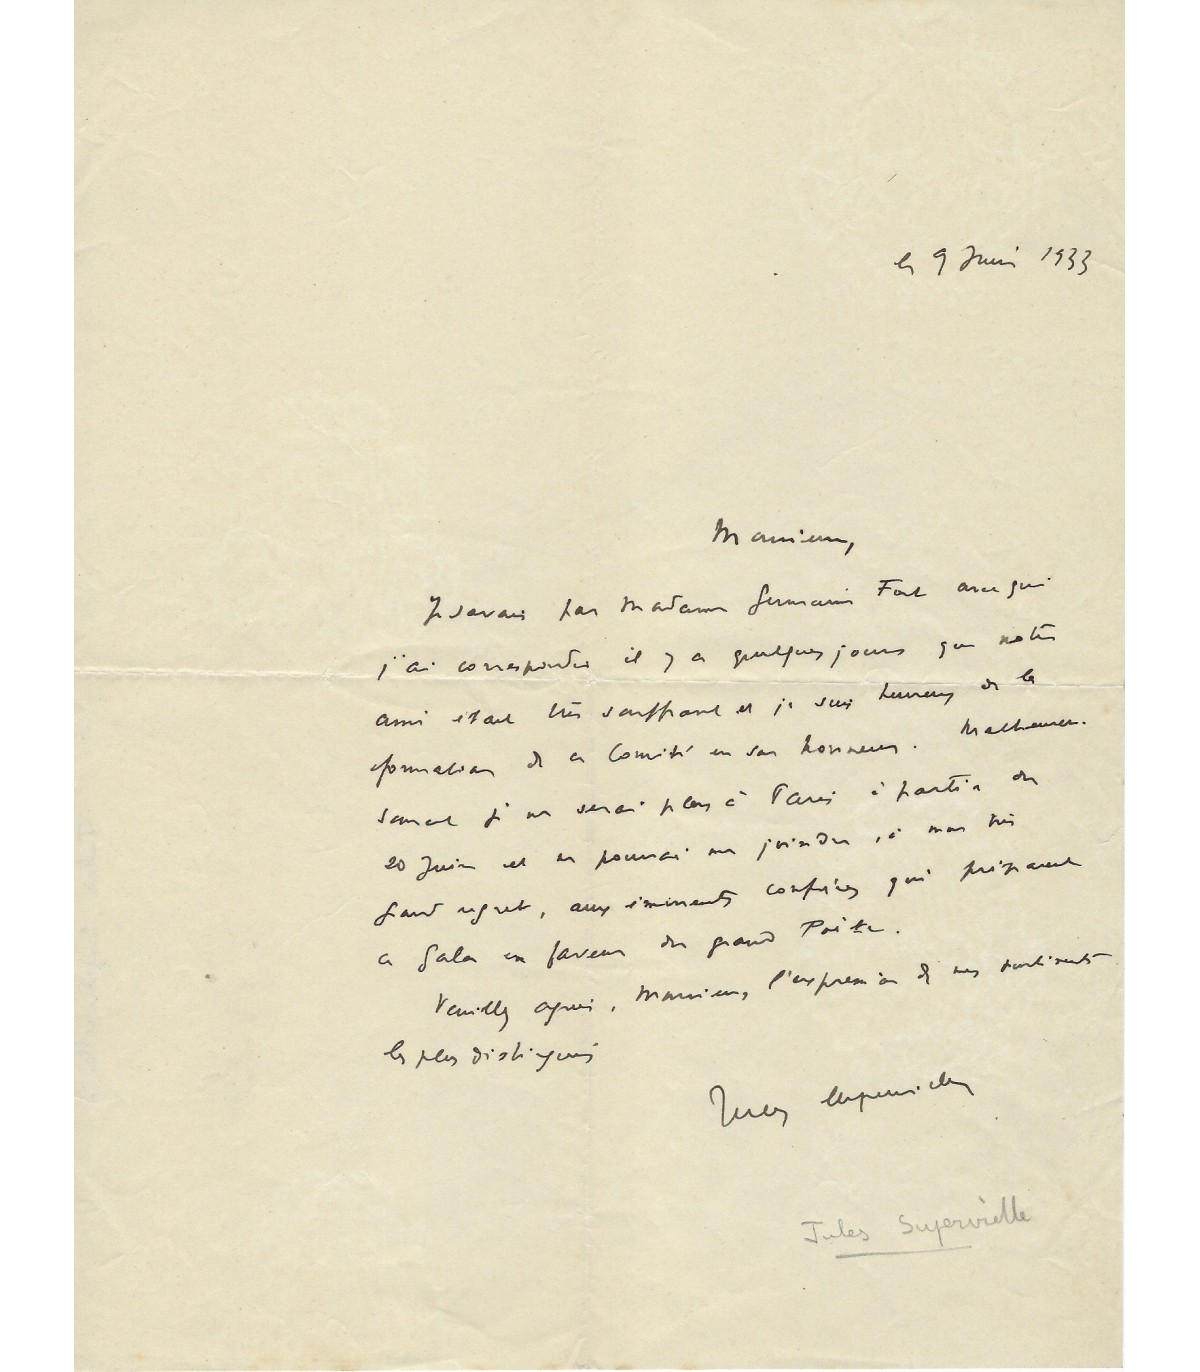 le 9 Juin 1933
Monsieur,
Je savais par Madame Germaine Fort avec qui
j'ai correspondu il y a quelques jours que notre
ami était très souffrant et je suis heureux de la
formation de ce Comité en son honneur. Malheureu-
sement je ne serai plus à Paris à partir du
20 Juin et ne pourrai me joindre, à mon très
grand regret, aux éminents confrères qui préparent
ce Gala en faveur du grand Poète.
Veuillez agréer, Monsieur, l'expression de mes sentiments
les plus distingués
Jules Supervielle
Jules Supervielle